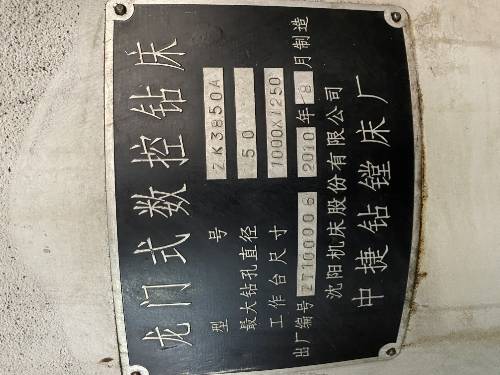 龙门式数控钻床
型号 ZK3850A
最大钻孔直径 50
工作台尺寸 1000X1250
出厂编号 ZT100006 2010年8月制造
沈阳机床股份有限公司
中捷钻镗床厂